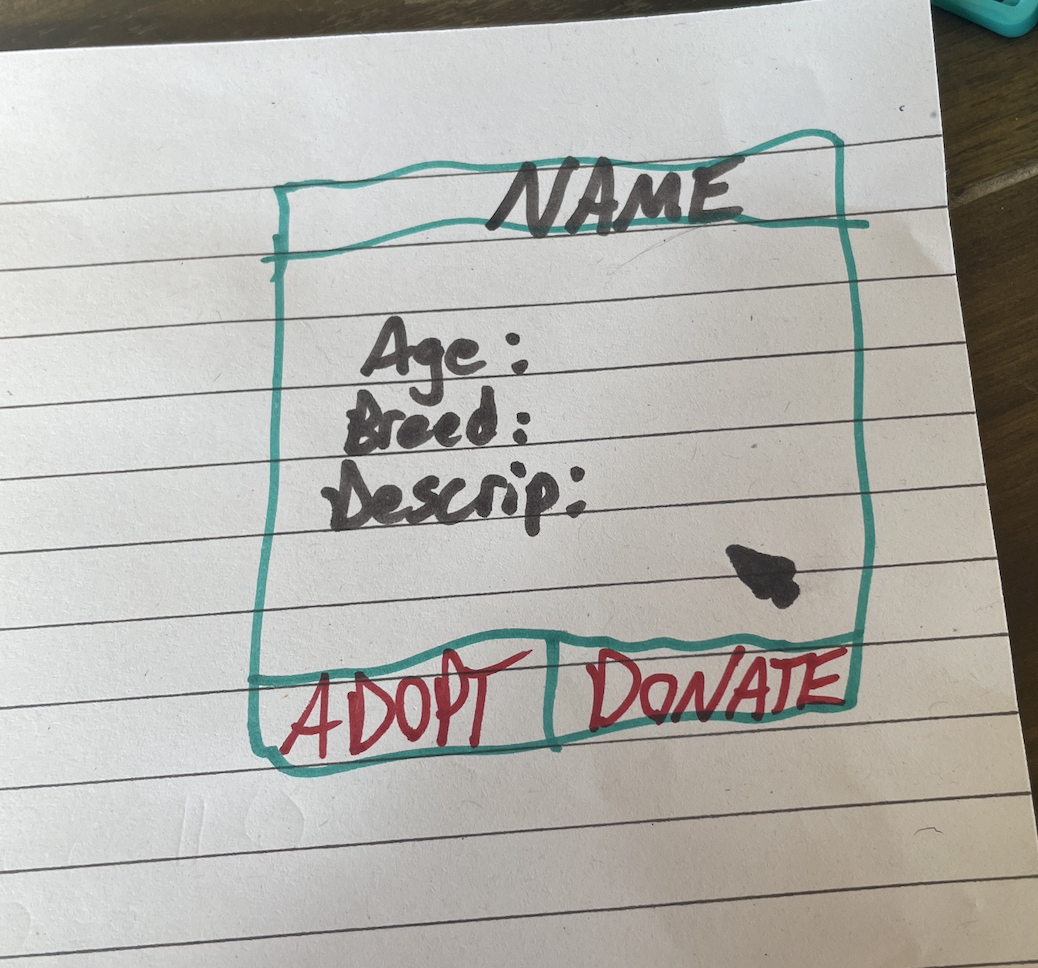 NAME
Age:
Breed:
Descrip:
ADOPT DONATE